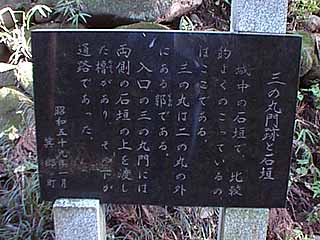 三の丸門跡と石垣
城中の石垣で、比較
的よくのこっているの
はここである。
三の丸は二の丸の外
にある郭である。
入口の三の丸門には
両側の石垣の上を渡し
た櫓があり、その下が
道路であった。
昭和五十 年一月
箕郷町